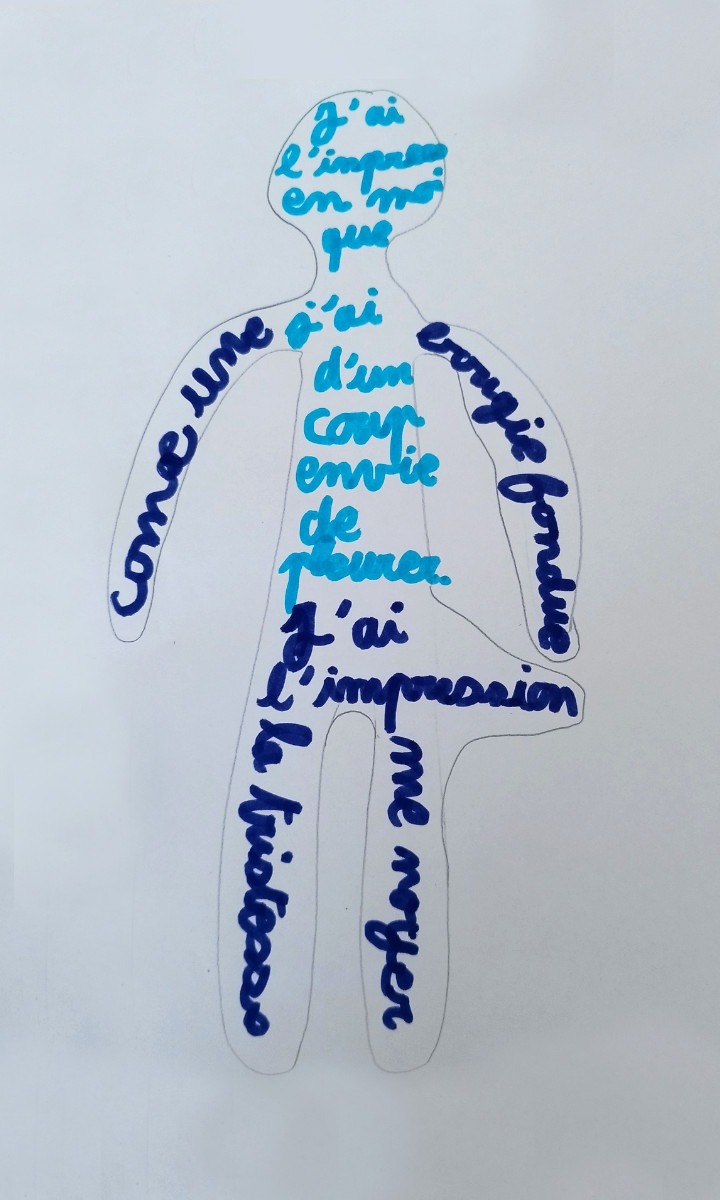 J'ai
l'impress
en moi
que
j'ai
d'un
coup
envie
de
pleurer.
J'ai
l'impression
me noyer
la tristesse
come une
bougie fondue